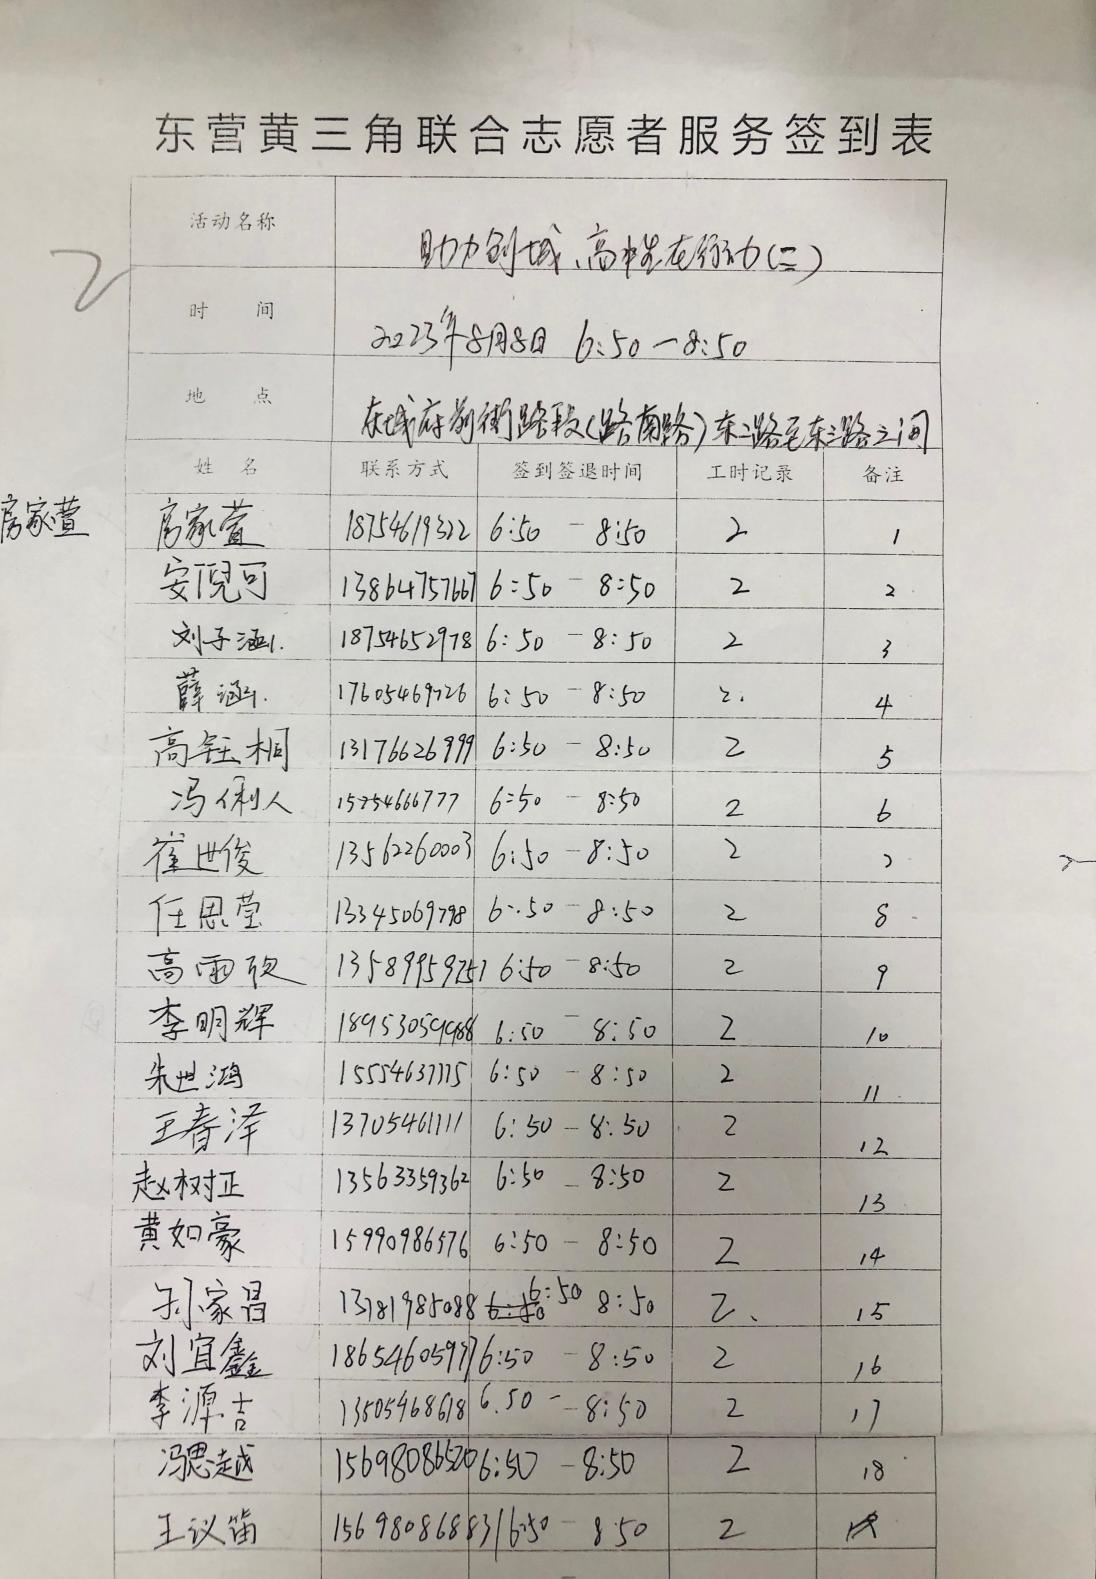 东营黄三角联合志愿者服务签到表
活动名称 助力创城、高中生在行动(二)
2
时 间 2023年8月8日 6:50-8:50
地 点 东城府前街路段(路南路)东二路至东三路之间
姓 名 联系方式 签到签退时间 工时记录 备注
房家萱 房家萱 18754619322 6:50 - 8:50 2 1
安倪可 13864757667 6:50 - 8:50 2 2
刘子涵 18754652978 6:50 - 8:50 2 3
薛涵 17605469726 6:50 - 8:50 2 4
高钰桐 13176626999 6:50 - 8:50 2 5
冯俐人 15254666777 6:50 - 8:50 2 6
崔世俊 13562260003 6:50 - 8:50 2 7
任思莹 13345069798 6:50 - 8:50 2 8
高雨欣 13589959751 6:50 - 8:50 2 9
李明辉 18953059988 6:50 - 8:50 2 10
朱世鸿 15554637775 6:50 - 8:50 2 11
王春泽 13705461111 6:50 - 8:50 2 12
赵树正 13563359362 6:50 - 8:50 2 13
黄如豪 15990986576 6:50 - 8:50 2 14
孙家昌 13781985088 6:50 8:50 2 15
刘宜鑫 18654605937 6:50 - 8:50 2 16
李源吉 13505468618 6:50 - 8:50 2 17
冯思越 15698086520 6:50 - 8:50 2 18
王议笛 15698086883 6:50 - 8:50 2